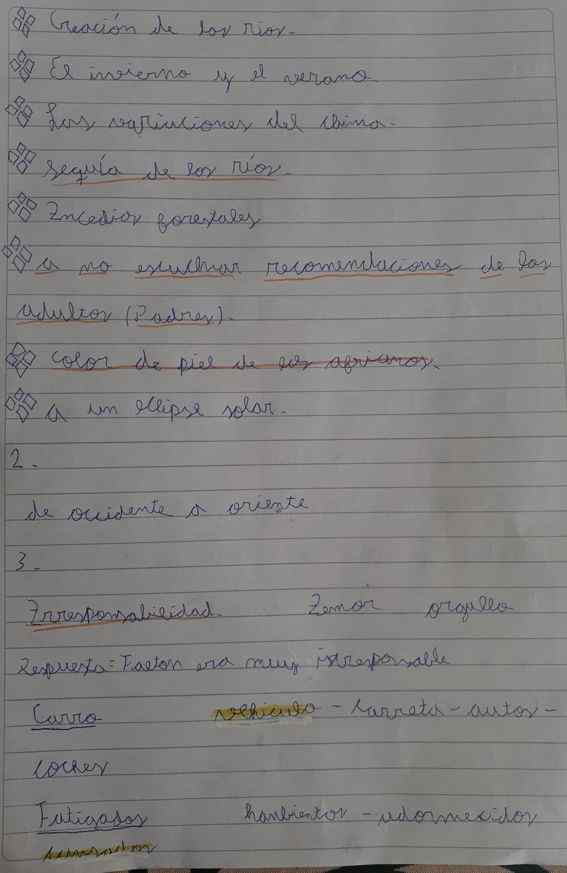 Creación de los ríos.
El invierno y el verano
Las variaciones del clima.
sequía de los ríos.
Incedios forestales
a no escuchar recomendaciones de los
adultos (Padres).
color de piel de los afrianos.
a un eclipse solar.
2.
de occidente a oriente
3.
Irresponsabilidad. Temor orgullo
Respuesta= Faeton era muy irresponsable
Carro vehiculo - Carreta - autos -
coches
Fatigados hanbrientos - adormecidos